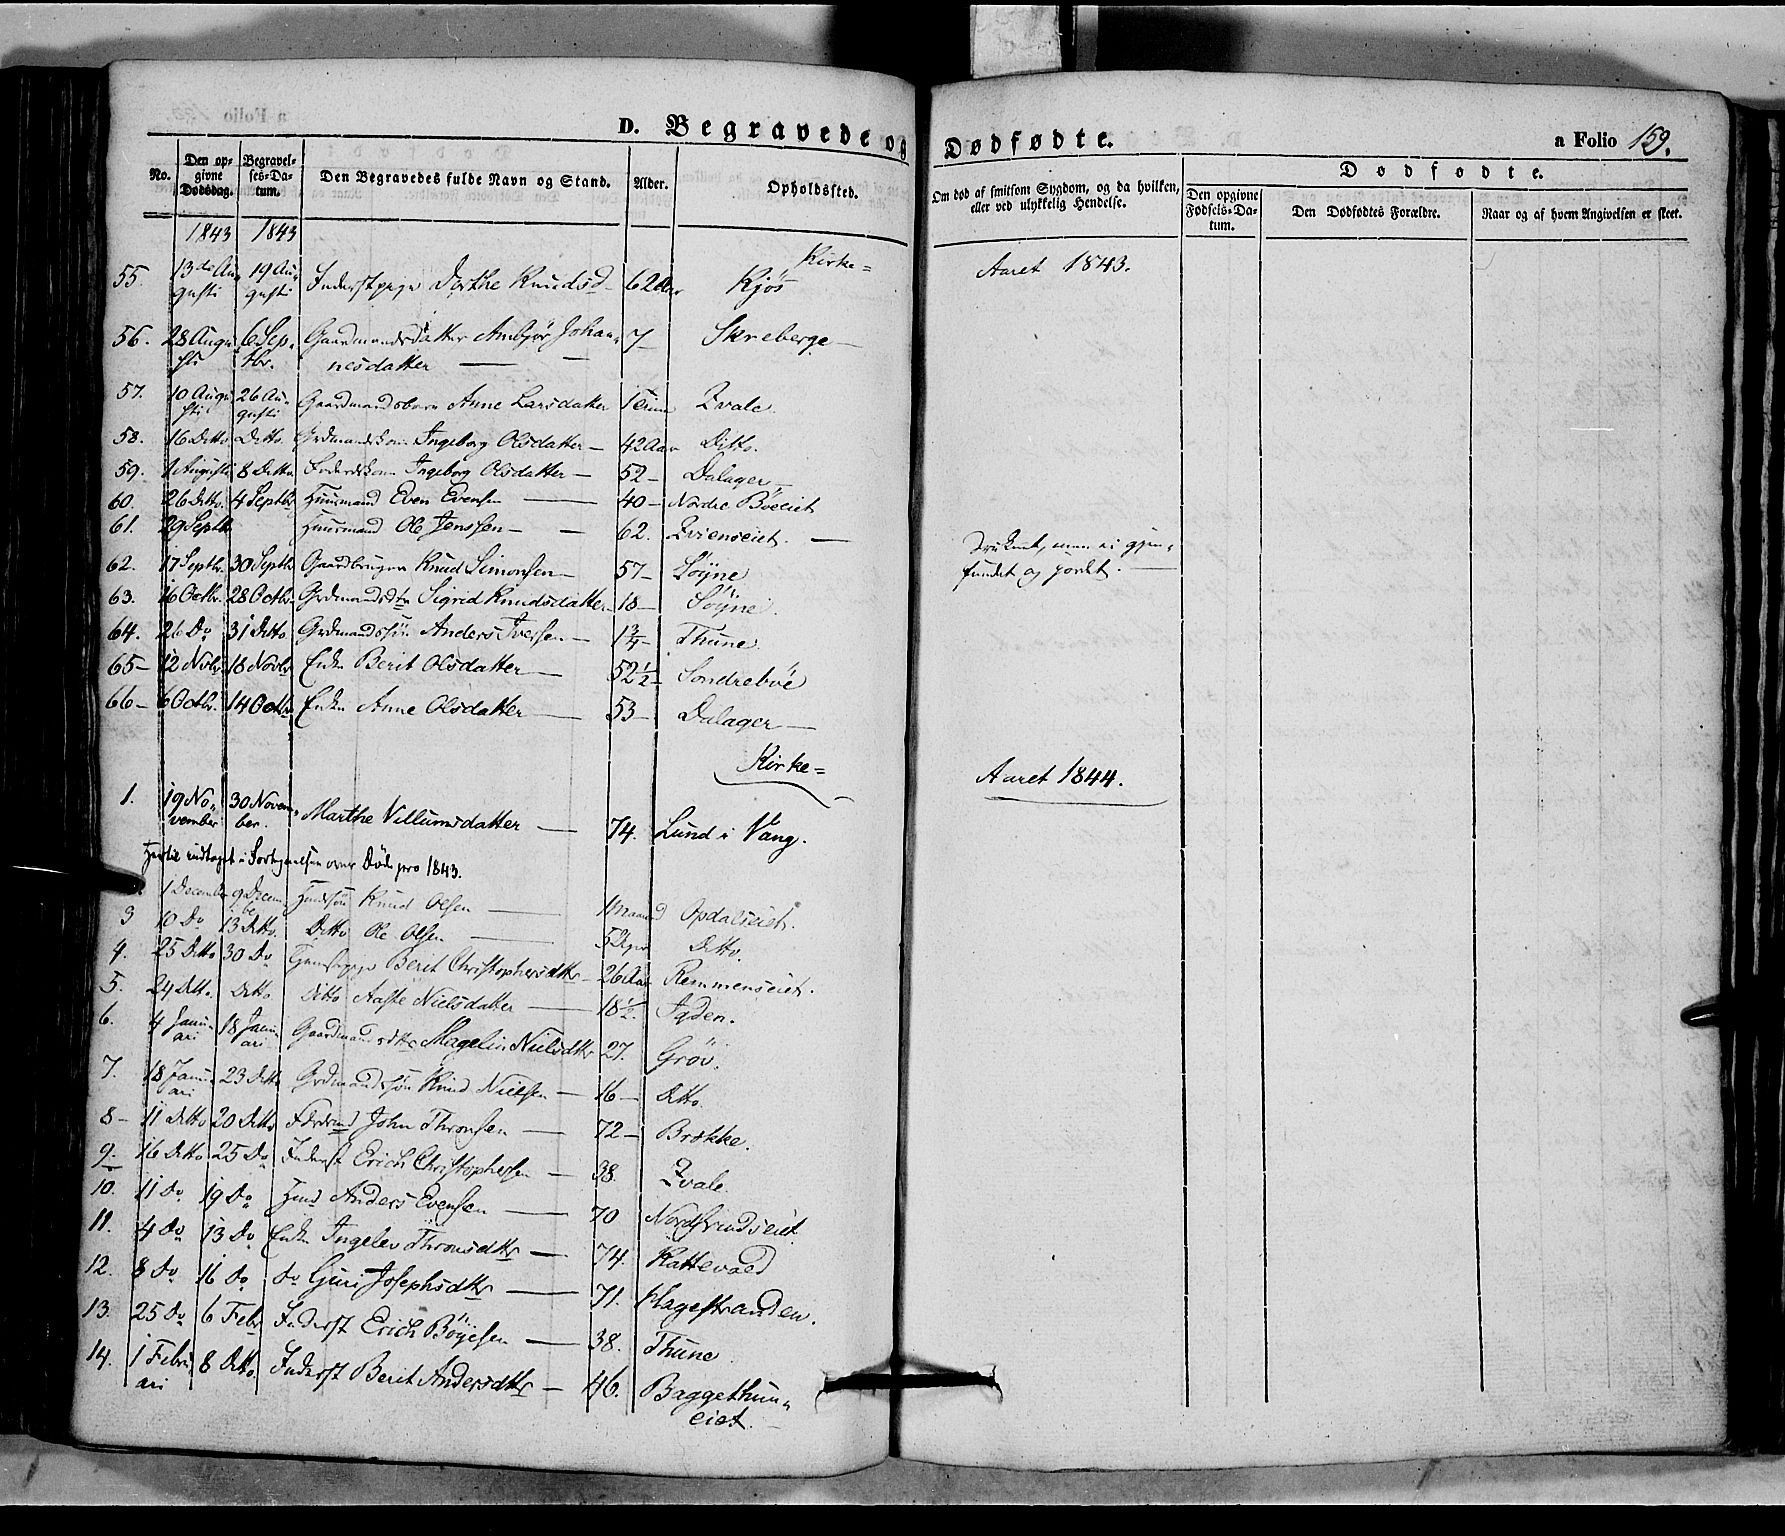 D. Begravede og Dødfødte.
a Folio 159.
No.
Den opgivne Dødsdag.
Begravelses-Datum.
Den Begravedes fulde Navn og Stand.
Alder.
Opholdssted.
Om død af smitsom Sygdom, og da hvilken, eller ved ulykkelig Hendelse.
Dødfødte.
Den opgivne Fødsels-Datum.
Den Dødfødtes Forældre.
Naar og af hvem Angivelsen er skeet.
1843 1843
Kirke=
Aaret 1843.
55. 13de Augusti 19 Augusti Inderstpige Dorthe Knudsd 62 Aar Kjös
56. 28 Augusti 6 Septbr. Gaardmandsdatter Ambjør Johannesdatter — 7 Skreberge —
57. 10 Augusti 26 Augusti Gaardmandsbarn Anne Larsdatter 1 Time Qvale.
58. 16 Ditto Ditto. Grdmandskone Ingeborg Olsdatter — 42 Aar Ditto.
59. 1 Augusti 8 Ditto Ingeborg Olsdatter — 52 — Dalager —
60. 26 Ditto. 4 Septbr Huusmand Even Evensen — 40 — Nordre Böeeiet
61. 29 Septbr Huusmand Ole Jenssen — 62. Qvienseiet. — Druknet, men ei gjenfundet og jordet. —
62. 17 Septbr. 30 Septbr Gaardbruger Knud Simonsen — 57 — Söyne
63. 16 Octbr. 28 Octbr. Grdmandsdtr Sigrid Knudsdatter 18 — Söyne.
64. 26 Do 31 Ditto Grdmandssön Anders Iversen — 1 3/4 — Thune.
65 — 12 Novbr 18 Novbr Enke Berit Olsdatter — 52 1/2 — Sondreböe
66 — 6 Octbr. 14 Octbr. Enke Anne Olsdatter — 53 — Dalager —
Kirke=
Aaret 1844.
1. 19 November 30 November. Marthe Villumsdatter — 74. Lund i Vang.
Hertil indtaget i Fortegnelsen over Døde pro 1843.
1 December 9 December Huusssön Knud Olsen — 1 Maaned Opdalseiet.
3 10 Do 13 Ditto. Ditto Ole Olsen — 5 Ditto.
4. 25 Ditto 30 Do Berit Christophersdtr — 26 Aar Remmenseiet.
5. 24 Ditto. Ditto Ditto Aaste Nielsdatter — 18 1/2. Igden.
6. 4 Januari 18 Januari Gaardmandsdtr Magelin Nielsdtr 27. Gröv.
7. 18 Januari 23 Ditto Grdmandssön Knud Nielsen — 16 — Ditto.
8 — 11 Ditto 20 Ditto John Thronsen — 72 — Brökke.
9. 16 Ditto 25 Do Inderst Erich Christophersen — 38. Qvale.
10. 11 Do 19 Do Huusd Anders Evensen — 70 Nordsvendseiet
11. 4 Do 13 Do Enke Ingelev Thronsdtr — 74. Kattevold
12. 8 Do 16 Do do Guri Josephsdtr — 71. Hagestranden.
13. 25 Do 6 Febr Inderst Erich Böyesen — 38. Thune
14. 1 Februari 8 Ditto. Inderst Berit Andersdtr — 46. Baggethuneiet.